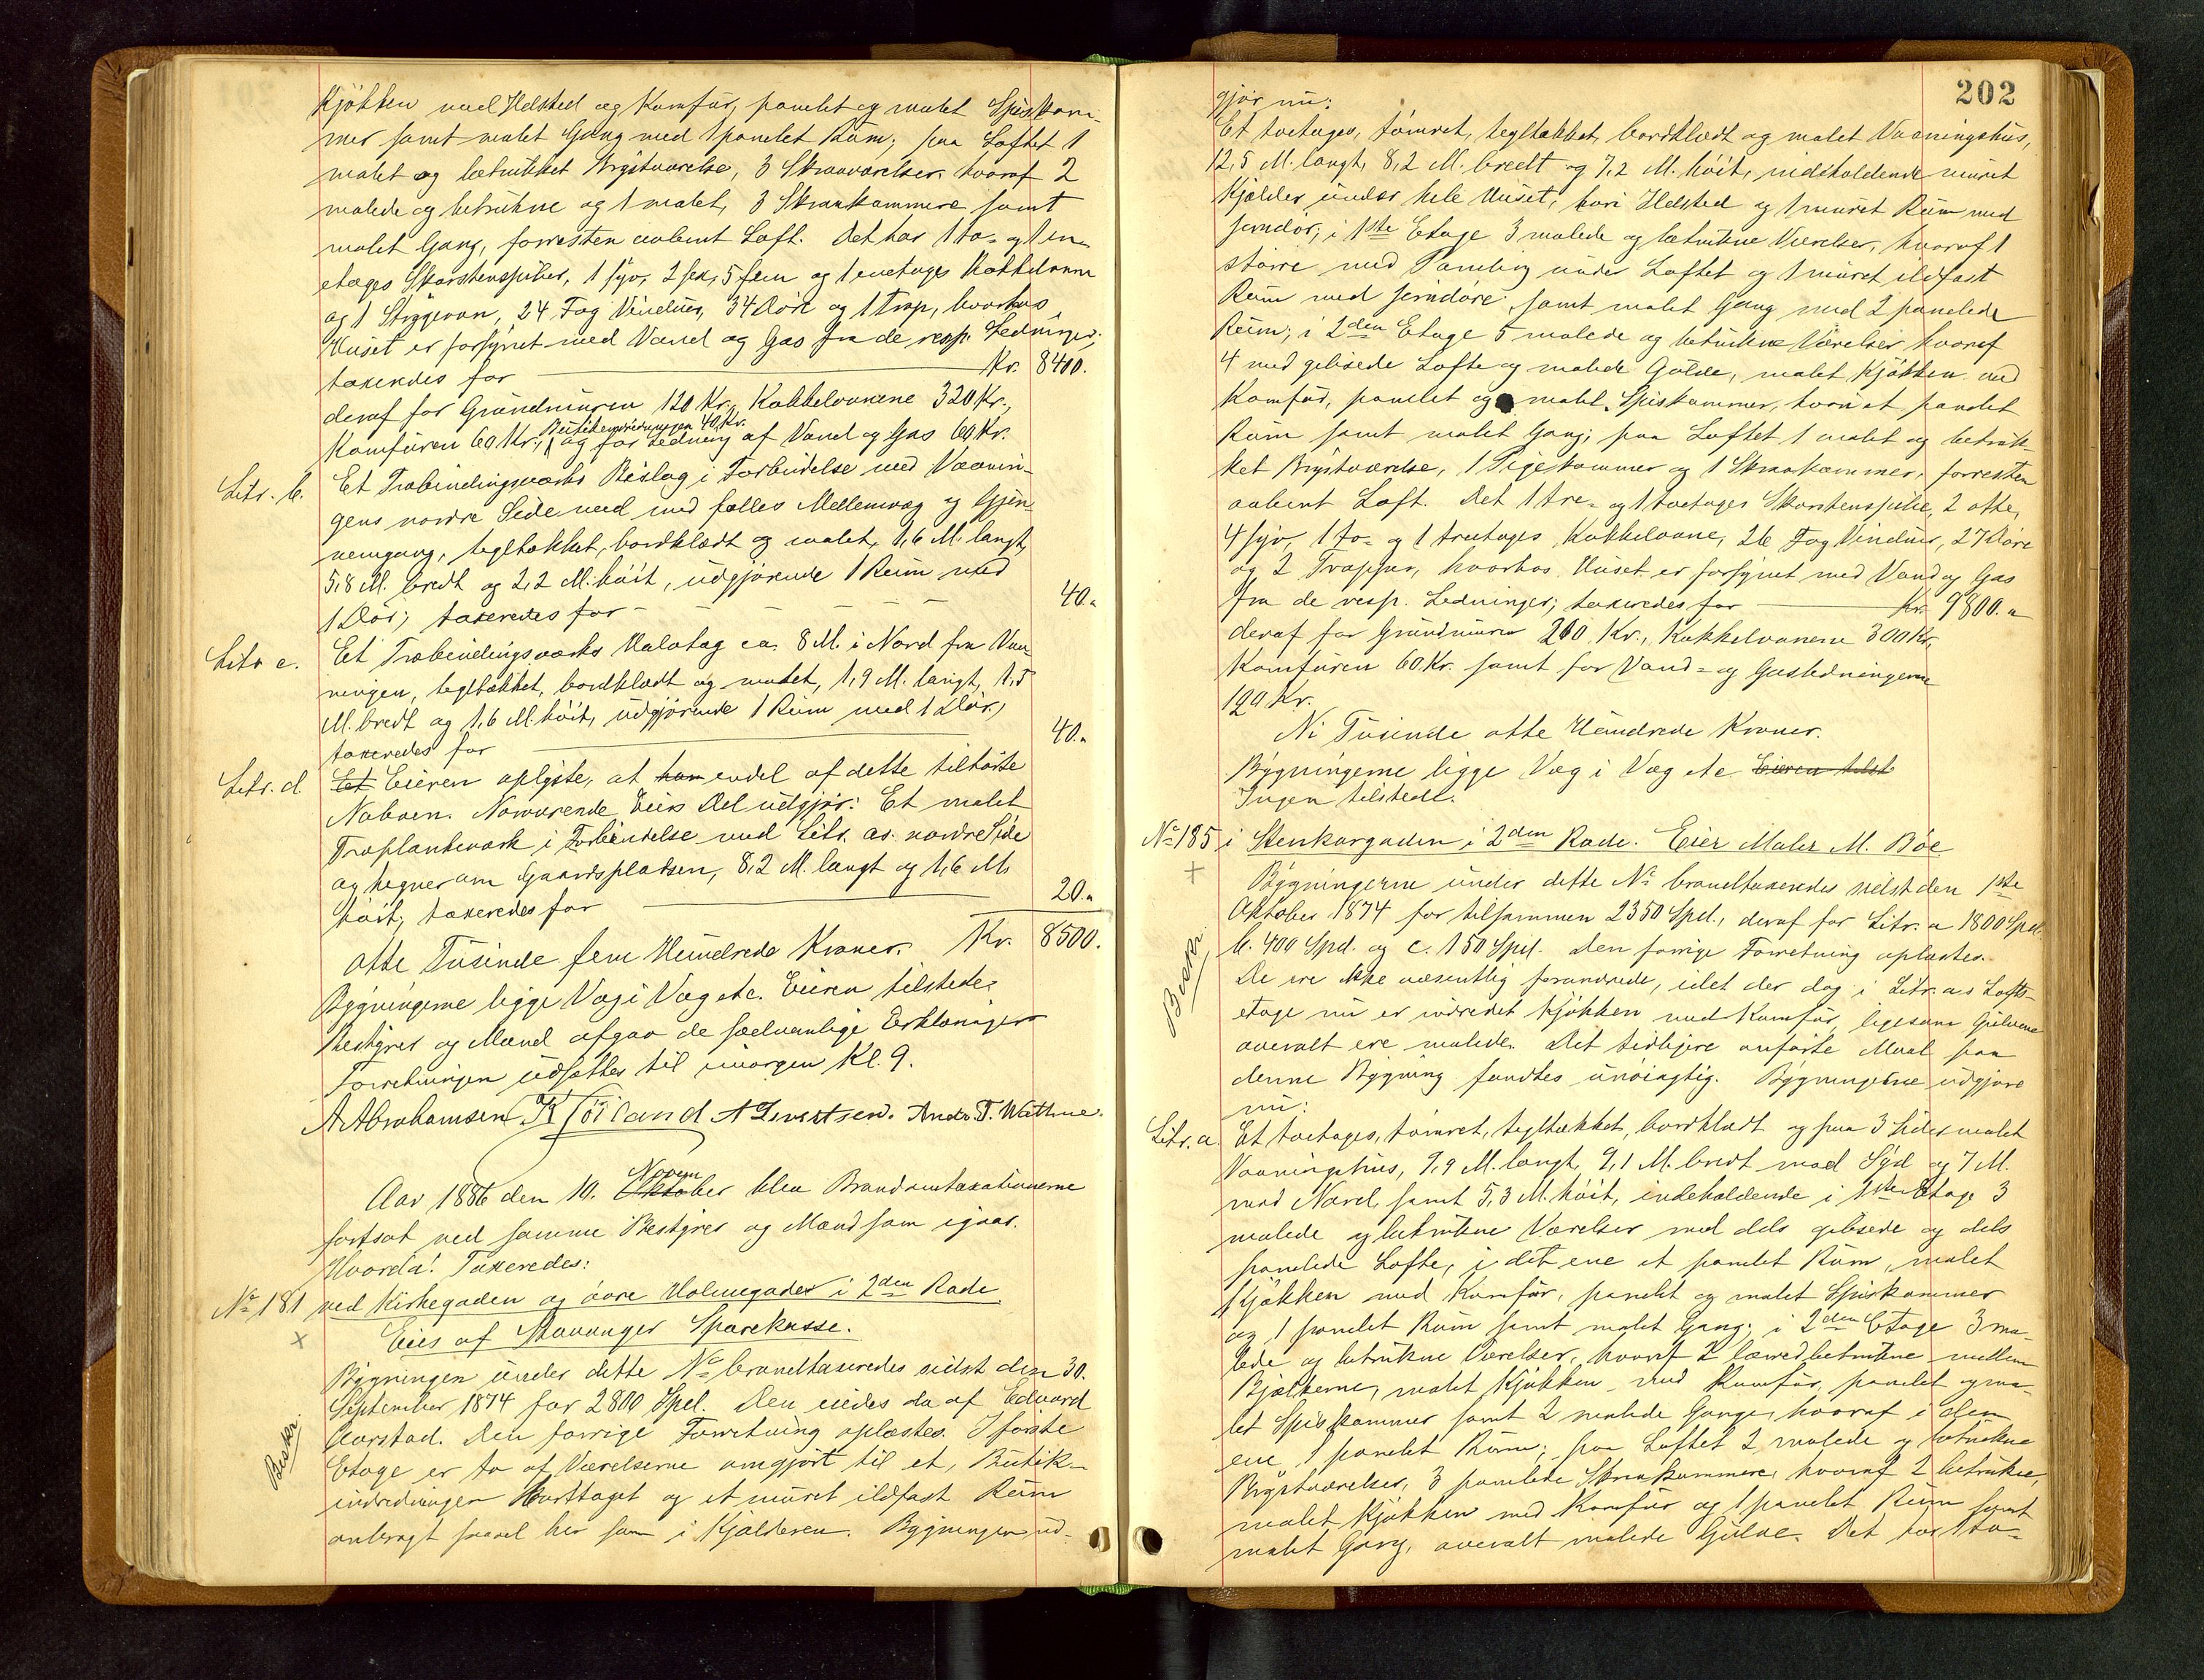 Kjökken med Ildsted og Komfür, panelet og malet Spiskam-
mer samt malet Gang med 1 panelet Rüm; paa Loftet 1
malet og betrükket Brystværelse, 3 Skraaværelser hvoraf 2
malede og betrükne og 1 malet, 3 Skraakammere samt
malet Gang, forresten aabent Loft. Det har 1 to- og 1 en-
etages Skorstenspiber, 1 syv, 2 sex, 5 fem og 1 enetages Kakkelovne
og 1 Strygeovn, 24 Fag Vindüer, 34 Döre og 1 Trap, hvorhos
Hüset er forsynet med Vand og Gas fra de resp. Ledninger;
taxeredes for Kr. 8400.
deraf for Gründmüren 120 Kr., Kakkelovnene 320 Kr.,
Bütikindredningen 40 Kr.
Komfüren 60 Kr., og for Ledning af Vand og Gas 60 Kr.
Litr. b. Et Træbindingsværks Bislag i Forbindelse med Vaanin-
gens nordre Side med fælles Mellemvæg og Gjen-
nemgang, tegltækket, bordklædt og malet, 1,6 M. langt,
5,8 M. bredt og 2,2 M. höit, üdgjörende 1 Rüm med
1 Dör; taxeredes for 40.
Litr c. Et Træbindingsværks Halvtag ca. 8 M. i Nord fra Vaa-
ningen, tegltækket, bordklædt og malet, 1,9 M. langt, 1,5
M. bredt og 1,6 M. höit, üdgjörende 1 Rüm med 1 Dör;
taxeredes for 40.
Litr. d Et Eieren oplyste, at han endel af dette tilhörte
Naboen. Nærværende Eiers Del üdgjör: Et malet
Træplankeværk i Forbindelse med Litr. as. nordre Side
og hegner om Gaardspladsen, 8,2 M. langt og 1,6 M.
höit; taxeredes for 20.
Otte Tüsinde fem Hündrede Kroner. Kr. 8500.
Bygningerne ligge Væg i Væg etc. Eieren tilstede.
Bestyrer og Mænd afgav de sædvanlige Erklæringer
Forretningen üdsættes til imorgen Kl. 9.
A Abrahamsen. K Joiland A Sivertsen. Andr. T. Wathne.
Novem
Aar 1886 den 10. Oktober blev Brandomtaxationerne
fortsat ved samme Bestyrer og Mænd som igaar.
Hvorda! Taxeredes:
No 181 ved Kirkegaden og övre Holmegaden i 2den Rode
Eies af Stavanger Sparekasse.
Bygningen ünder dette No brandtaxeredes sidst den 30.
September 1874 for 2800 Spd. Den eiedes da af Edvard
Aarstad. Den forrige Forretning oplæstes. I förste
Beskr.
Etage er to af Værelserne omgjört til et, Bütik-
indredningen borttaget og et müret ildfast Rüm
anbragt saavel her som i Kjælderen. Bygningen üd-
202
gjör nü:
Et toetages, tömret, tegltækket, bordklædt og malet Vaaningshüs,
12,5 M. langt, 8,2 M. bredt og 7,2 M. höit, indeholdende müret
Kjælder ünder hele Hüset, hvori Ildsted og 1 müret Rüm med
Jerndör; i 1ste Etage 3 malede og betrükne Værelser, hvoraf 1
större med Paneling ünder Loftet og 1 müret ildfast
Rüm med Jerndöre samt malet Gang med 2 panelede
Rüm; i 2den Etage 5 malede og betrükne Værelser hvoraf
4 med gibsede Lofte og malede Gülve, malet Kjökken med
Komfür, panelet og malet Spiskammer, hvori et panelet
Rüm samt malet Gang; paa Loftet 1 malet og betrük-
ket Brystværelse, 1 Pigekammer og 1 Skraakammer, forresten
aabent Loft. Det 1 tre- og 1 toetages Skorstenspibe, 2 otte,
4 syv, 1 to- og 1 treetages Kakkelovne, 26 Fag Vindüer, 27 Döre
og 2 Trapper, hvorhos Hüset er forsynet med Vand og Gas
fra de resp. Ledninger; taxeredes for Kr. 9800.
deraf for Gründmüren 200 Kr., Kakkelovnene 300 Kr,
Komfüren 60 Kr. samt for Vand- og Gasledningerne
120 Kr.
Ni Tüsinde otte Hündrede Kroner.
Bygningerne ligge Væg i Væg etc. Eieren tilst
Ingen tilstede.
No 185 i Stenkargaden i 2den Rode. Eier Maler M. Böe
Bygningerne ünder dette No brandtaxeredes sidst den 1ste
Oktober 1874 for tilsammen 2350 Spd., deraf for Litr. a 1800 Spd.
b. 400 Spd. og c. 150 Spd. Den forrige Forretning oplæstes.
Beskr.
De ere ikke væsentlig forandrede, idet der dog i Litr. as Lofts-
etage nü er indredet Kjökken med Komfür, ligesom Gülvene
overalt ere malede. Det tidligere anförte Maal paa
denne Bygning fandtes ünöiagtig. Bygningerne üdgjöre
nü:
Litr. a. Et toetages, tömret, tegltækket, bordklædt og paa 3 Sider malet
Vaaningshüs, 7,9 M. langt, 9,1 M. bredt mod Syd og 7 M.
mod Nord, samt 5,3 M. höit, indeholdende i 1ste Etage 3
malede og betrükne Værelser med dels gibsede og dels
panelede Lofte, i det ene et panelet Rüm, malet
Kjökken med Komfür, panelet og malet Spiskammer
og 1 panelet Rüm samt malet Gang; i 2den Etage 3 ma-
lede og betrükne Værelser, hvoraf 2 lærredbetrükne mellem
Bjælkerne, malet Kjökken med Komfür, panelet og ma-
let Spiskammer samt 2 malede Gange, hvoraf i den
ene 1 panelet Rüm; paa Loftet 2 malede og betrükne
Brystværelser, 3 panelede Skraakammere hvoraf 2 betrükne,
malet Kjökken med Komfür og 1 panelet Rüm samt
malet Gang, overalt malede Gülve. Det har 1 to-